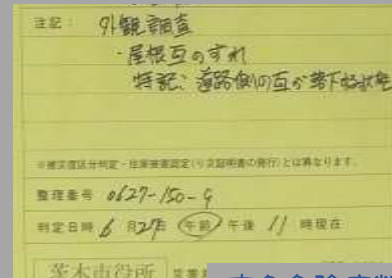 注記： 外観調査
・屋根瓦のずれ
特記：道路側の瓦が落下
※被災度区分判定・住家被害認定(り災証明書の発行)とは異なります。
整理番号 0627-150-9
判定日時 6月27日 午前 午後 11 時現在
茨木市役所